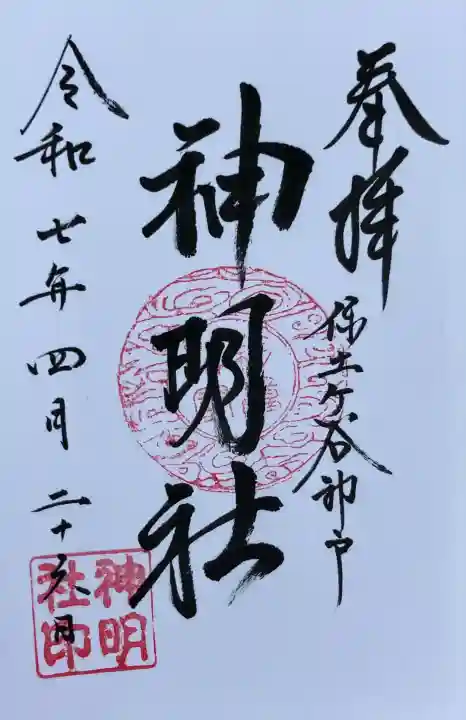 奉拝
保土ヶ谷神戸
神明社
令和七年四月二十六日
神明
社印